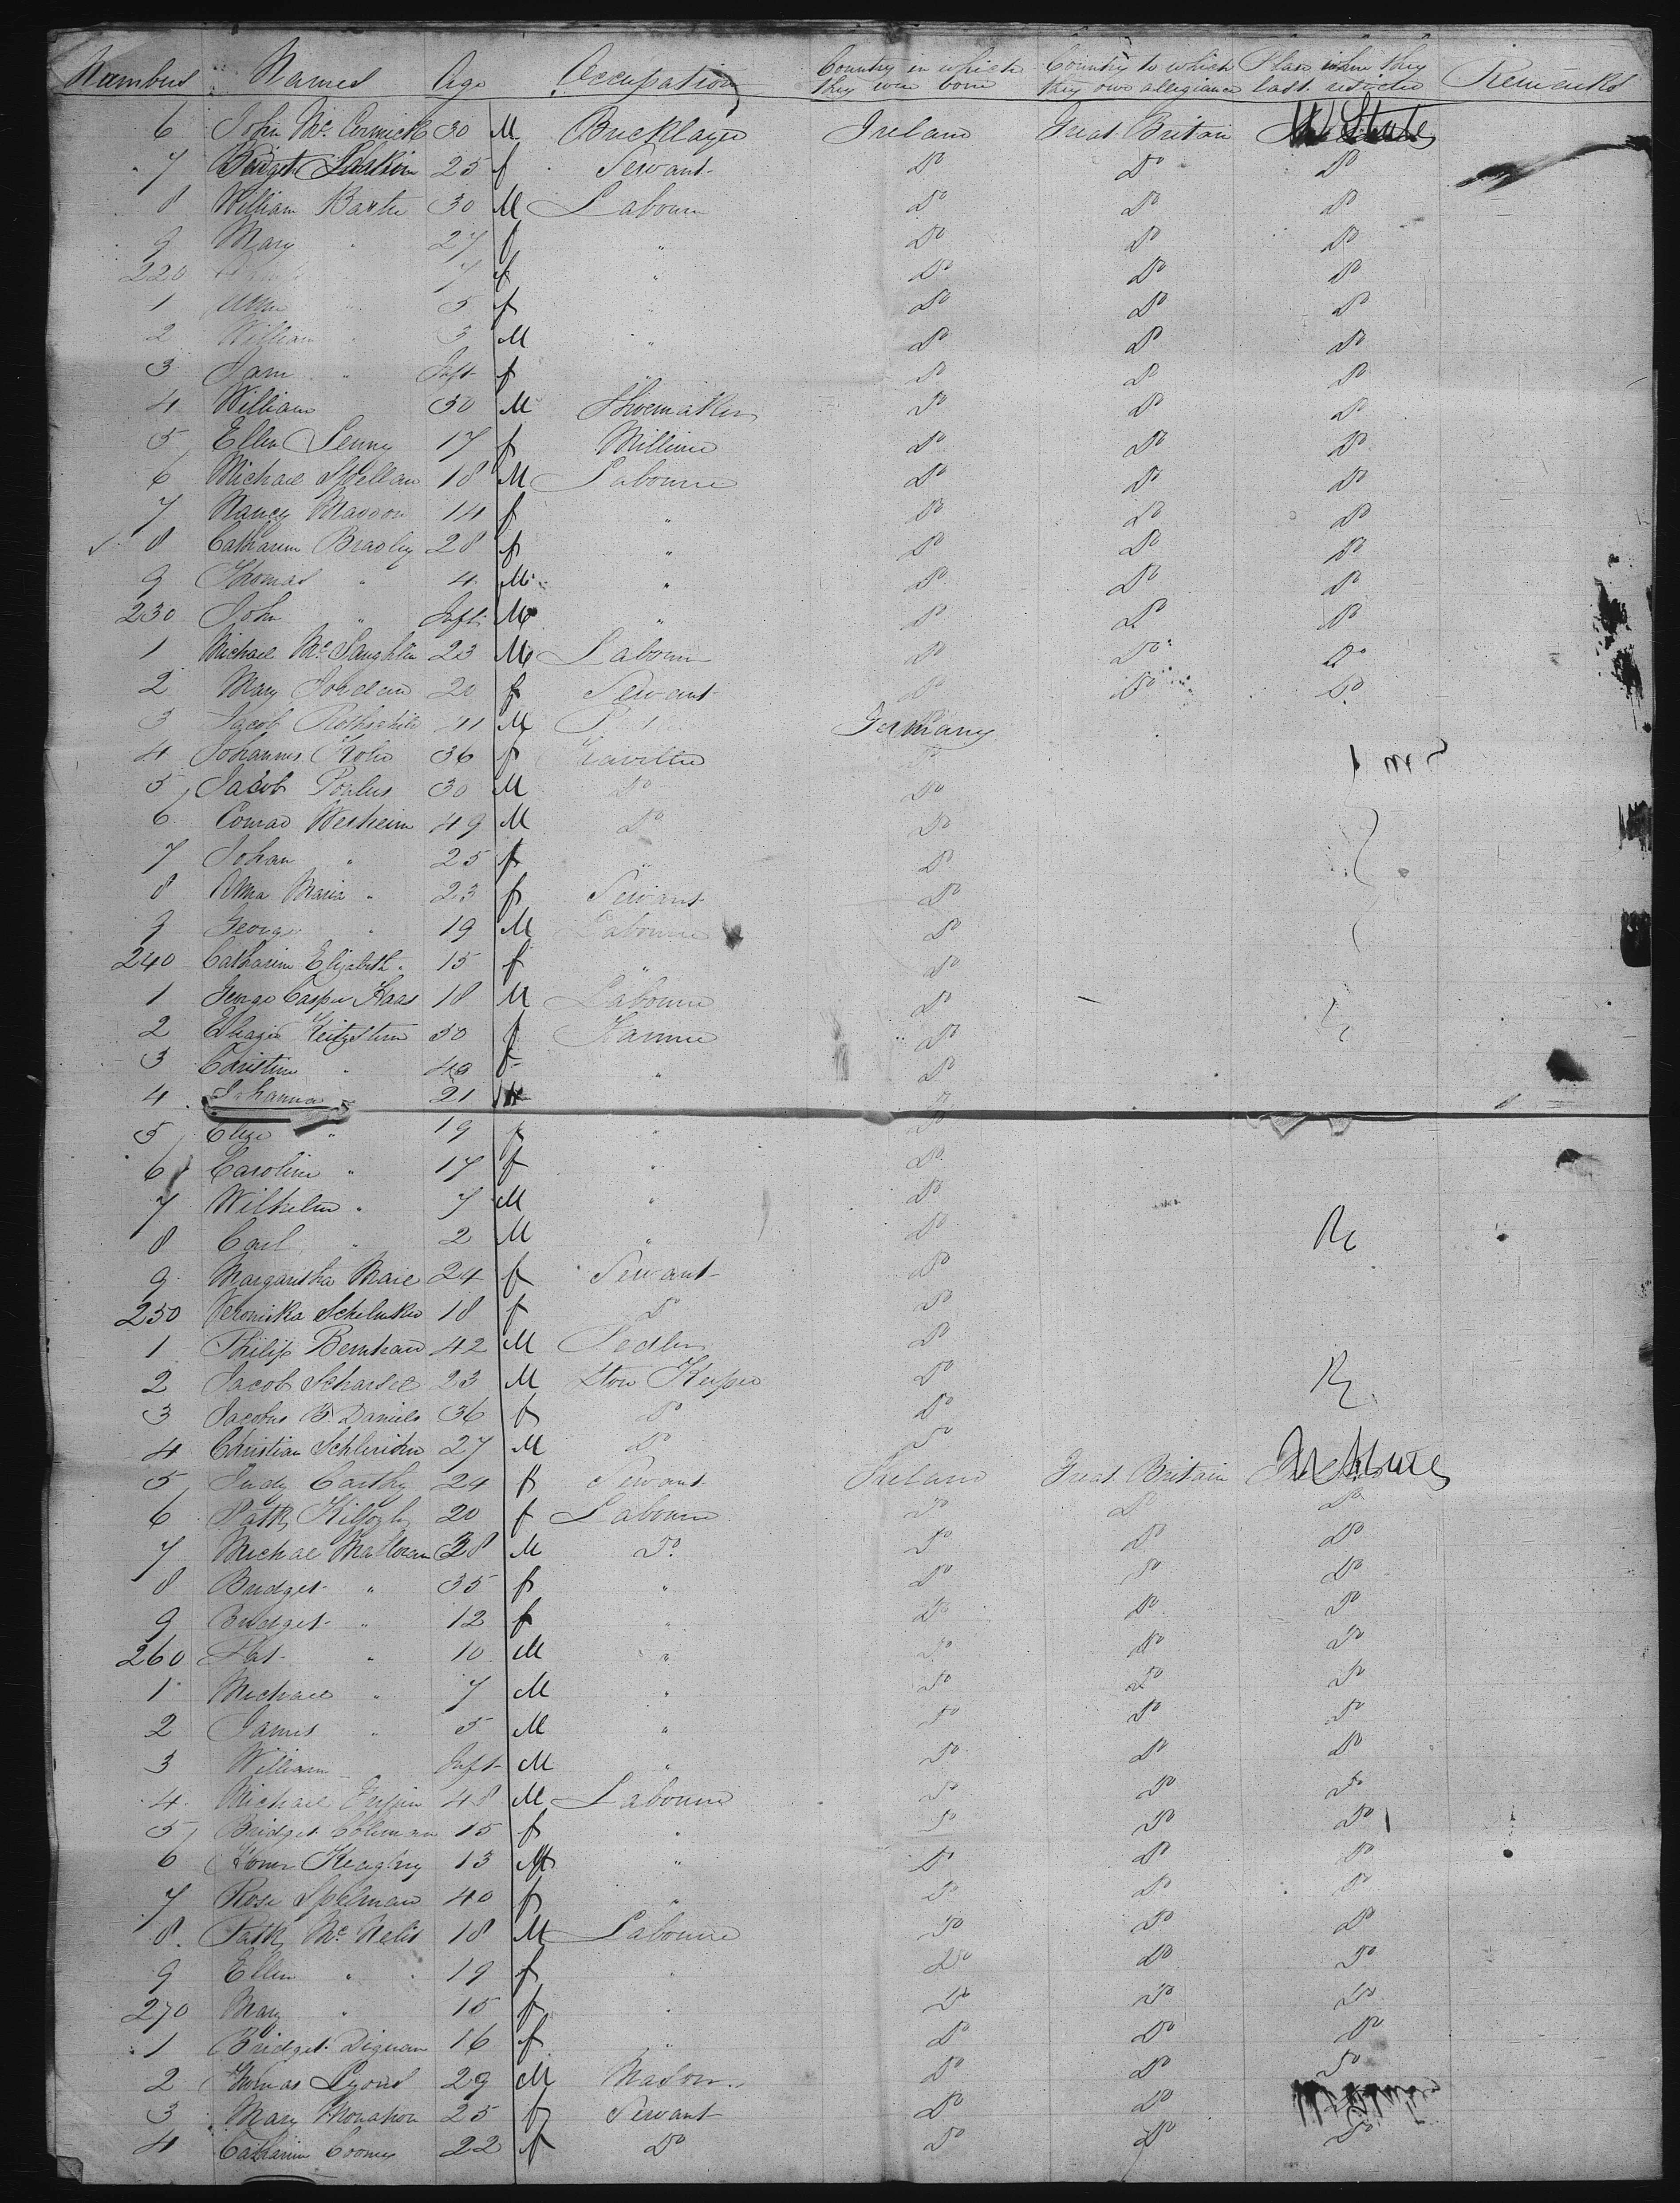 Numbers Names Age Occupation Country in which they were born Country to which they owe allegiance Place where they last resided Remarks
6 John Mc Cormick 30 M Bricklayer Ireland Great Britain
7 Bridget 25 f Servant Do Do Do
8 William Baxter 30 M Labourer Do Do Do
9 Mary " 27 f " Do Do Do
220 7 f " Do Do Do
1 Anna " 5 f " Do Do Do
2 William " 3 M " Do Do Do
3 Jane " Inft f " Do Do Do
4 William 30 M Shoemaker Do Do Do
5 Ellen Lenny 17 f Milliner Do Do Do
6 Michael Spellan 18 M Labourer Do Do Do
7 Nancy Maddon 14 f " Do Do Do
8 Catharine Bradley 28 f " Do Do Do
9 Thomas " 4 M " Do Do Do
230 John " Inft M " Do Do Do
1 Michael Mc Laughlin 23 M Labourer Do Do Do
2 Mary Jordan 20 f Servant Do Do Do
3 Jacob Rothschild 41 M Germany
4 Johannes 36 f Do
5 Jacob Paulus 30 M Do Do
6 Conrad Werheim 49 M Do Do
7 Johan " 25 f " Do
8 Anna Maria " 23 f Servant Do
9 George " 19 M Labourer Do
240 Catharine Elizabeth " 15 f " Do
1 George Casper Haas 18 M Labourer Do
2 50 f Farmer Do
3 Christine " 40 f " Do
4 Johanna " 21 Do
5 Eliza " 19 f " Do
6 Caroline " 17 f " Do
7 Wilhelm " 7 M " Do
8 Carl " 2 M " Do
9 Margaretha Maie 24 f Servant Do
250 Veronika 18 f Do Do
1 Philip Bernhard 42 M Pedler Do
2 Jacob 23 M Store Keeper Do
3 Jacobus B. Daniels 36 f Do Do
4 Christian 27 M Do Do
5 Judy Carthy 24 f Servant Ireland Great Britain
6 Patk 20 f Labourer Do Do Do
7 Michael 38 M Do Do Do Do
8 Bridget " 35 f " Do Do Do
9 Bridget " 12 f " Do Do Do
260 Pat " 10 M " Do Do Do
1 Michael " 7 M " Do Do Do
2 James " 5 M " Do Do Do
3 William Inft M " Do Do Do
4 Michael 48 M Labourer Do Do Do
5 Bridget Coleman 15 f " Do Do Do
6 Honor Keaghry 13 " Do Do Do
7 Rose Spelman 40 f " Do Do Do
8 Patk Mc Nelis 18 M Labourer Do Do Do
9 Ellen " 19 f " Do Do Do
270 Mary " 15 f " Do Do Do
1 Bridget Dignan 16 f " Do Do Do
2 Thomas Lyons 29 M Mason Do Do Do
3 Mary Monahon 25 f Servant Do Do
4 Catharine Cooney 22 f Do Do Do Do